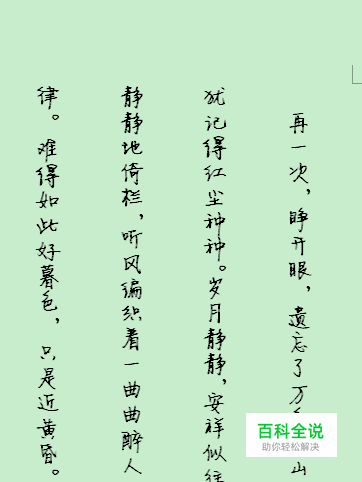 再一次，睁开眼，遗忘了万山
犹记得红尘种种。岁月静静，安祥似往
静静地倚栏，听风编织着一曲曲醉人
律。难得如此好暮色，只是近黄昏。
百科全说
助你轻松解决